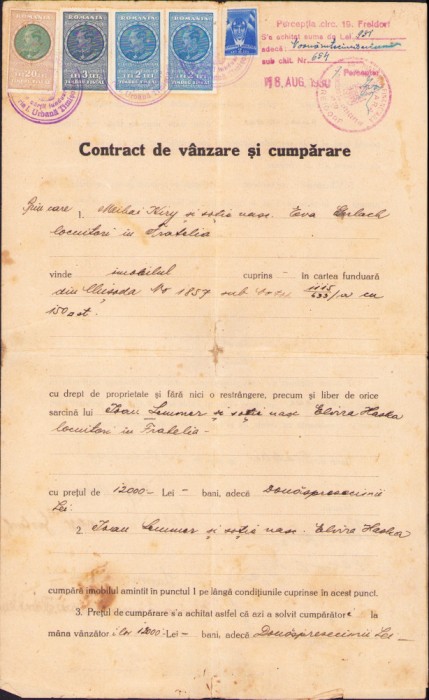 ROMANIA ROMANIA ROMANIA ROMANIA
20 3 M 2 M 2 M
TIMBRU FISCAL TIMBRU FISCAL TIMBRU FISCAL
Percepția circ. 19. Freidorf
S'a achitat suma de Lei 881
adecă
sub chit. Nr. 654
Perceptor
18 AUG. 1930
Contract de vânzare și cumpărare
Prin care 1. Mihai Kiry și soția nasc. Eva Gerlach
locuitori în Fratelia
vinde imobilul cuprins în cartea funduară
din Chisoda No 1857 sub
150 st.
cu drept de proprietate și fără nici o restrângere, precum și liber de orice
sarcină lui Ioan Lemmer și soția nasc. Elvira Haska
locuitori în Fratelia -
cu prețul de 12000 - Lei - bani, adecă Douăsprezecemii
Lei.
2. Ioan Lemmer și soția nasc. Elvira Haska
cumpără imobilul amintit în punctul 1 pe lângă condițiunile cuprinse în acest punct.
3. Prețul de cumpărare s'a achitat astfel că azi a solvit cumpărător la
mâna vânzător i lei 12000 - Lei - bani, adecă Douăsprezecemii Lei -